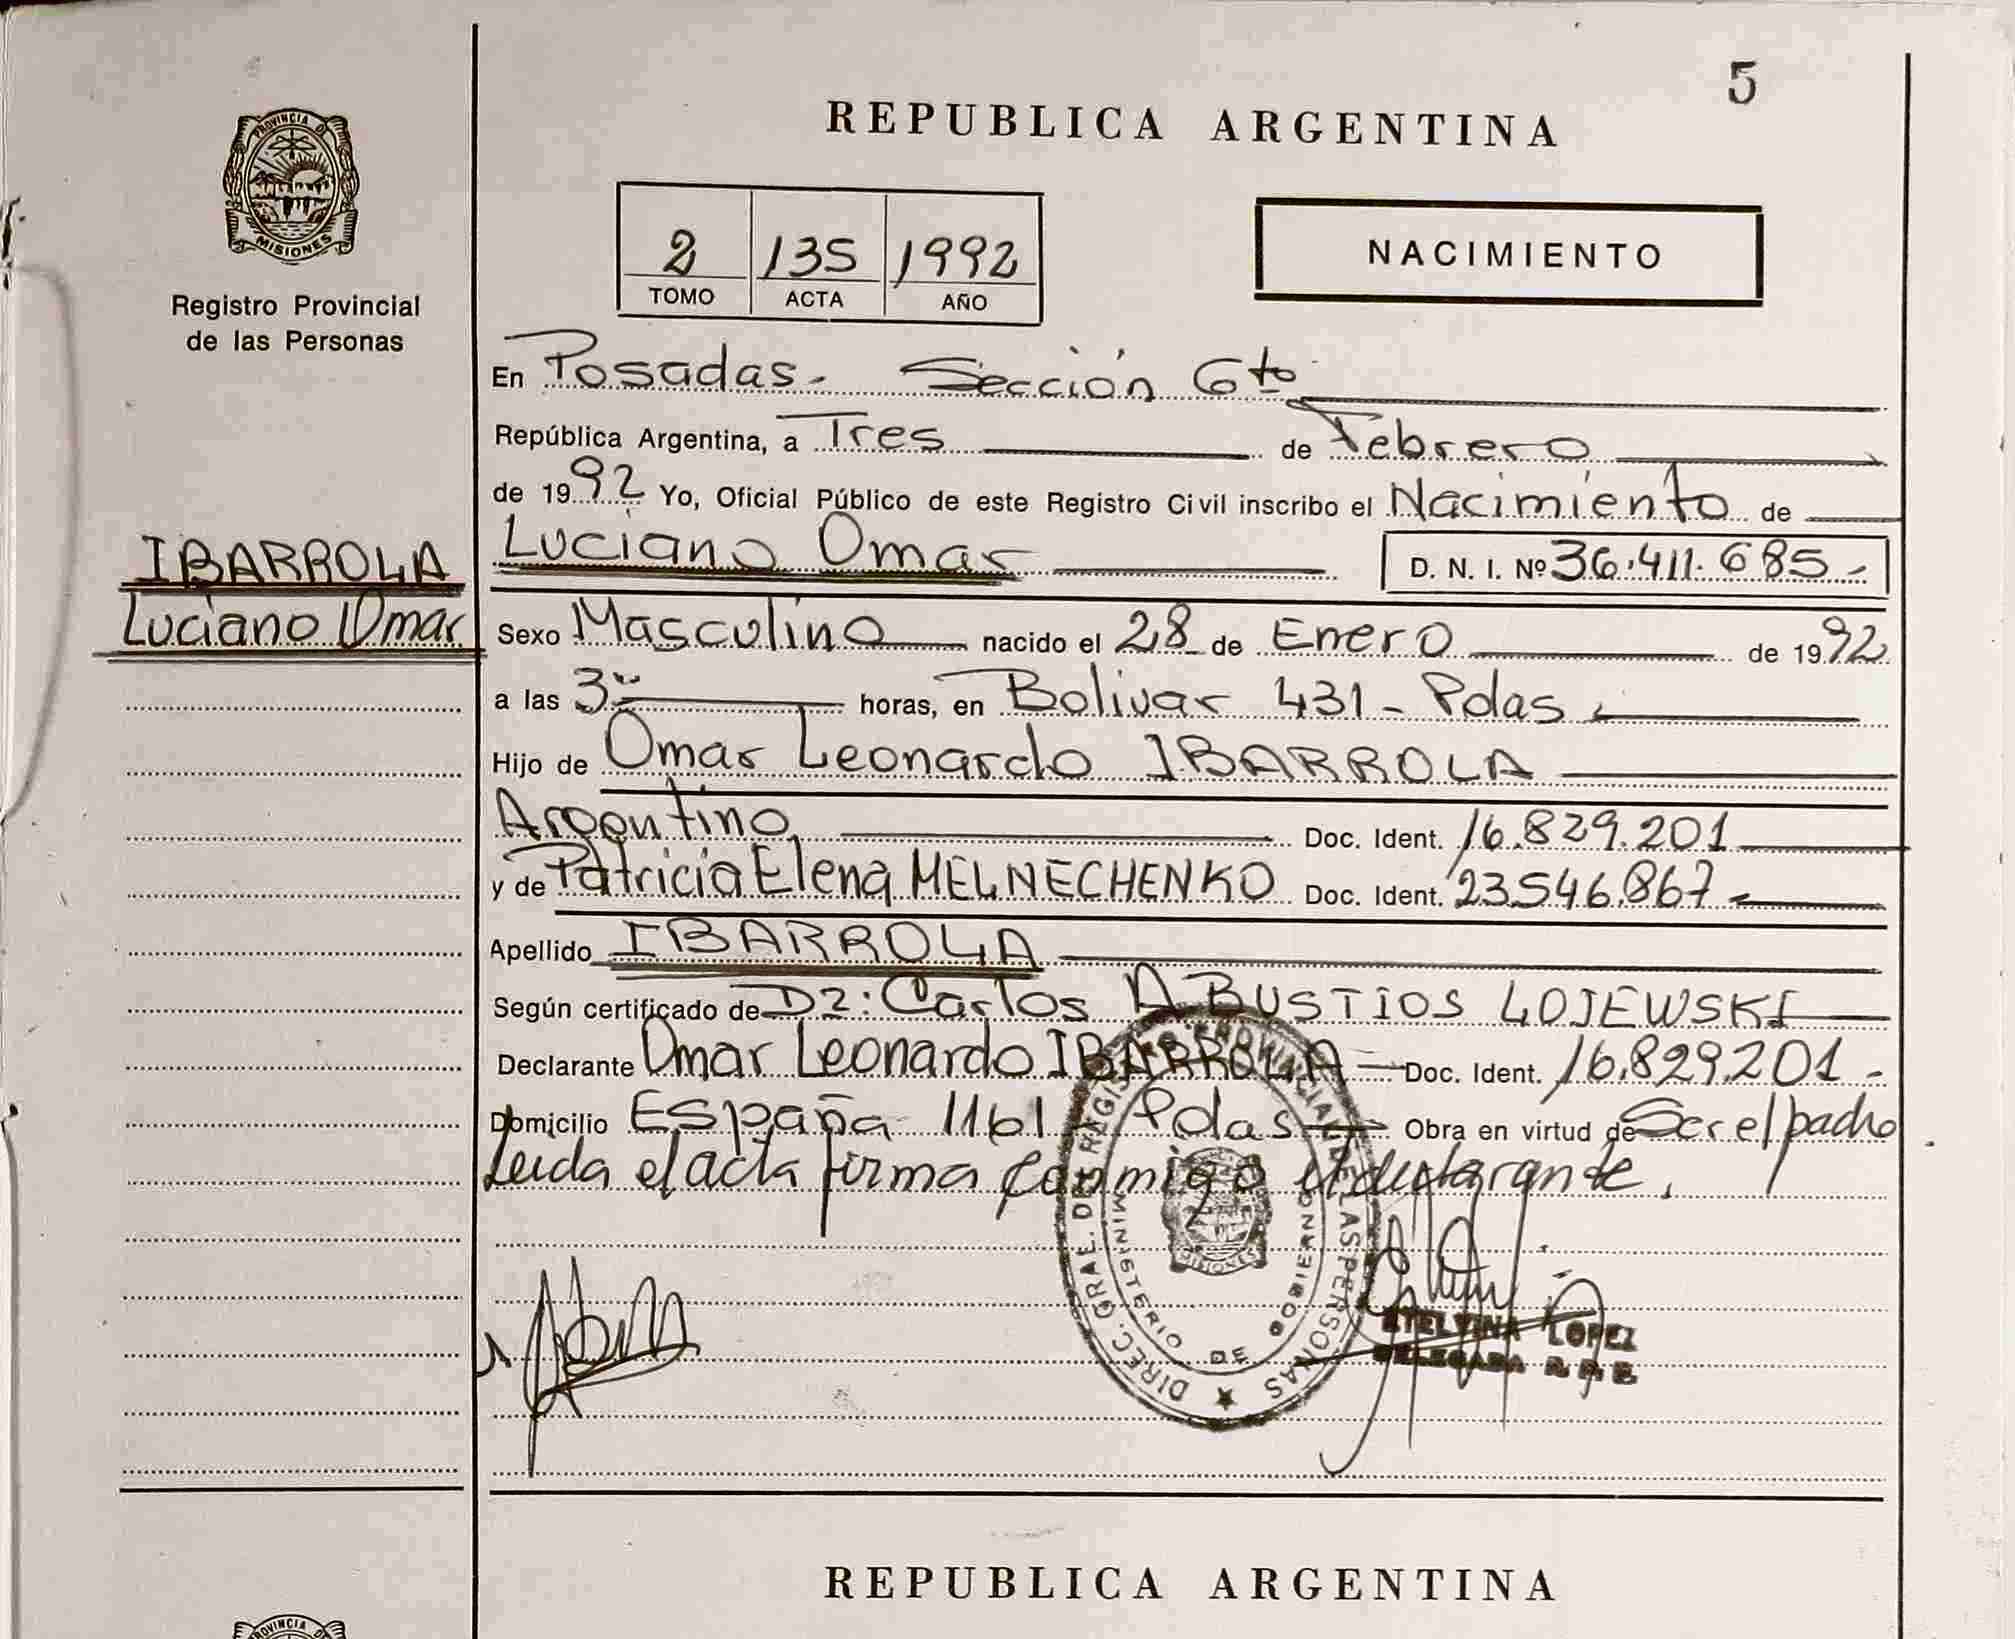 5
REPUBLICA ARGENTINA
PROVINCIA D
MISIONES
Registro Provincial
de las Personas
2 135 1992
TOMO ACTA AÑO
NACIMIENTO
En Posadas - Sección 6to
República Argentina, a Tres de Febrero
de 1992 Yo, Oficial Público de este Registro Civil inscribo el Nacimiento de
IBARROLA
Luciano Omar
Luciano Omar D. N. I. Nº 36.411.685 -
Sexo Masculino nacido el 28 de Enero de 1992
a las 3 horas, en Bolivar 431 - Pdas
Hijo de Omar Leonardo IBARROLA
Argentino Doc. Ident. 16.829.201
y de Patricia Elena MELNECHENKO Doc. Ident. 23.546.867
Apellido IBARROLA
Según certificado de D2: Carlos A BUSTIOS LOJEWSKI
Declarante Omar Leonardo IBARROLA Doc. Ident. 16.829.201 -
Domicilio España 1161 Pdas Obra en virtud de Ser el padre
Leida el acta firma conmigo el declarante.
DIREC. GRAL. DEL REGISTRO PROVINCIAL DE LAS PERSONAS
MINISTERIO DE GOBIERNO
MISIONES
ETELVINA LOPEZ
DELEGADA R.P.P.
REPUBLICA ARGENTINA